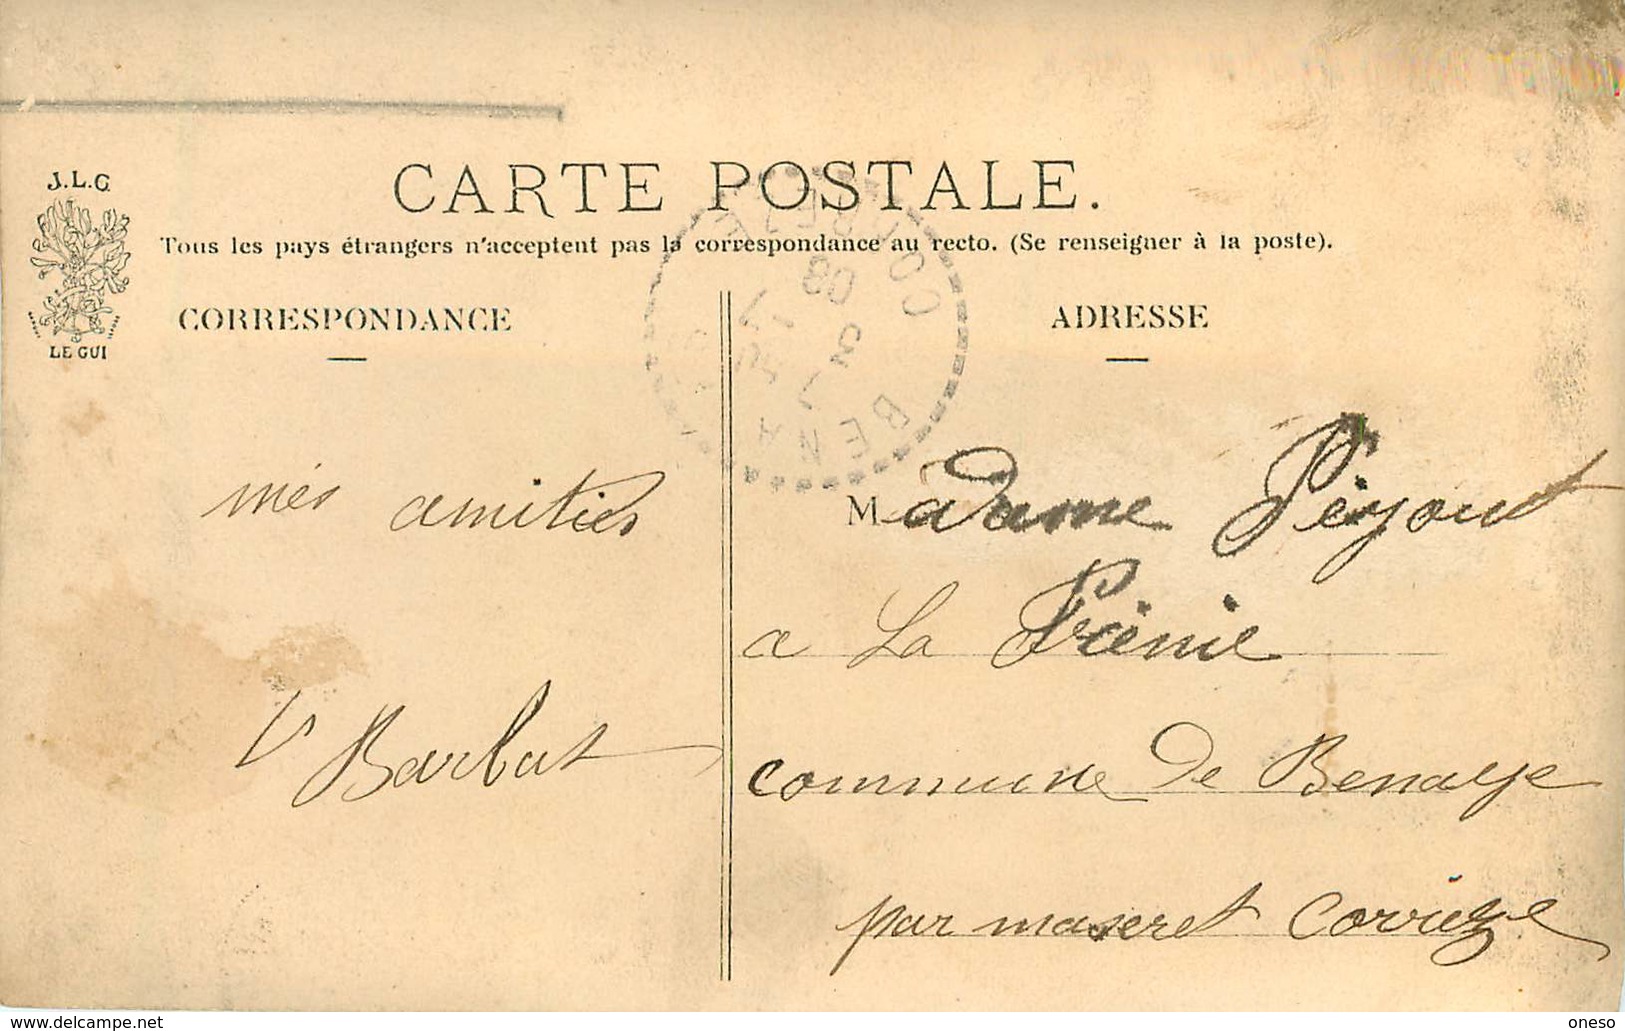 J.L.C
LE GUI
CARTE POSTALE.
Tous les pays étrangers n'acceptent pas la correspondance au recto. (Se renseigner à la poste).
CORRESPONDANCE
ADRESSE
BENA
mes amitiés
Barbat
Madame Peyout
a La
commune de Benaye
par maseret Corrèze
www.delcampe.net
oneso